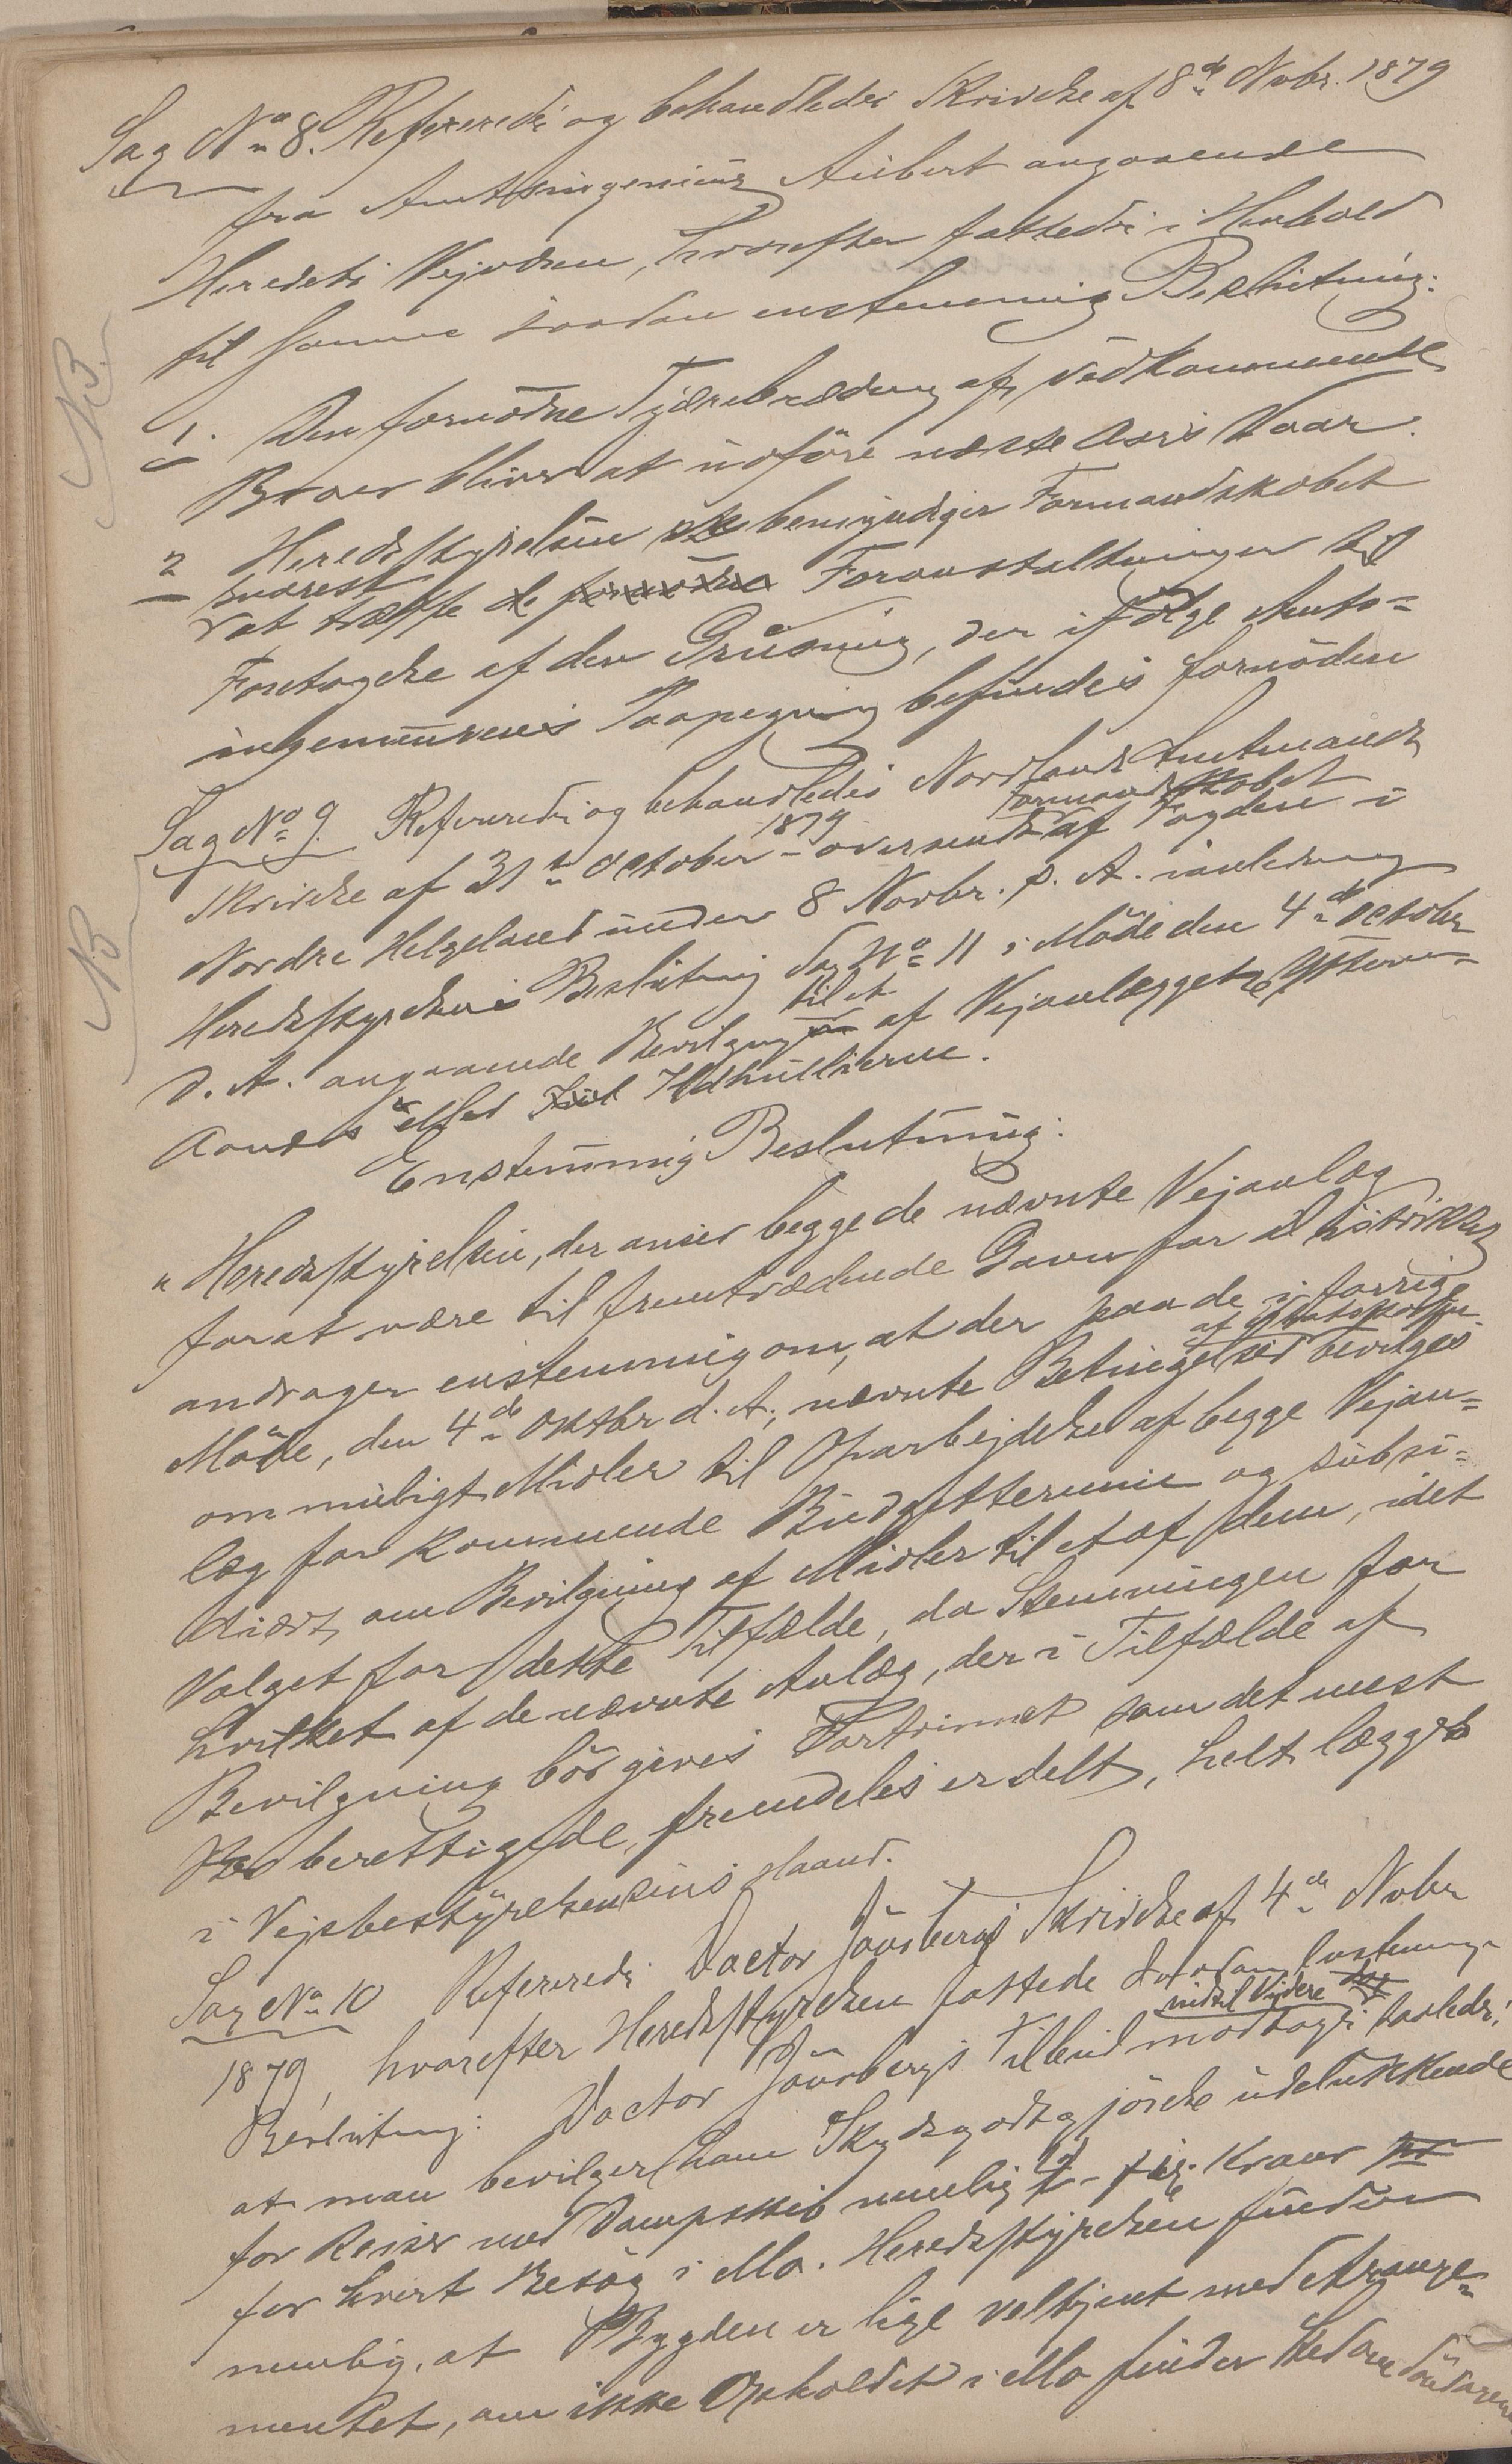 Sag No 8. Refereredes og behandledes Skrivelse af 8de Novbr. 1879
fra Amtsingeniør Aubert angaaende
Heredets Vejvæsen, hvorefter fattedes i Henhold
til samme saadan enstemmig Beslutning:
1. Den fornødne Tjærebredning af vedkommende
Broer bliver at udføre næste Aars Vaar.
2 Heredsstyrelsen bemyndiger Formandskabet
snarest
at træffe de fornødne Foranstaltninger til
Foretagelse af den Grusning, der ifølge Amts-
ingeniørens Paapegning befindes fornøden
Sag No 9. Refereredes og behandledes Nordlands Amtmands
Formandskabet
Skrivelse af 31te October 1879 – oversendt af Fogden i
Nordre Helgeland under 8 Novbr. s. A. i anledning
Heredsstyrelsens Beslutning Sag No 11 i Møde den 4de October
til et
d. A. angaaende Bevilgning af Vejanlæggets Ytteren-
Aanæs eller Ildhullierne.
Enstemmig Beslutning:
"Heredsstyrelsen, der anser begge de nævnte Vejanlæg
for at være til fremtrædende Gavn for distriktet
andrager enstemmig om, at der paa de i forrige
af Amtskassen
Møde, den 4de Oktbr d. A., nævnte Betingelser bevilges
om muligt Midler til Oparbejdelse af begge Vejan-
læg for kommende Budgettermin og subsi-
diært, om Bevilgning af Midler til et af dem, idet
Valget for dette Tilfælde, da Stemningen for
hvilket af de nævnte Anlæg, der i Tilfælde af
Bevilgning bør gives Fortrinnet som det mest
berettigede, fremdeles er delt, helt lægges
i Vejbestyrelsens Haand.
Sag No 10 Refereredes Doctor Jaursbergs Skrivelse af 4de Novbr
1879, hvorefter Heredsstyrelsen fattede saadan enstemmig
indtil Videre
Beslutning: Doctor Jaursbergs Tilbud modtages saaledes,
at man bevilger ham Skydsgodtgjørelse udelukkende
for Reiser med Dampskib nemlig 4 – fire Kroner
for hvert Besøg i Mo. Heredsstyrelsen finder
nemlig, at Bygden er lige veltjent med Arrange-
mentet, om ikke Opholdet i Mo finder Sted om Søndagene
NB.
NB